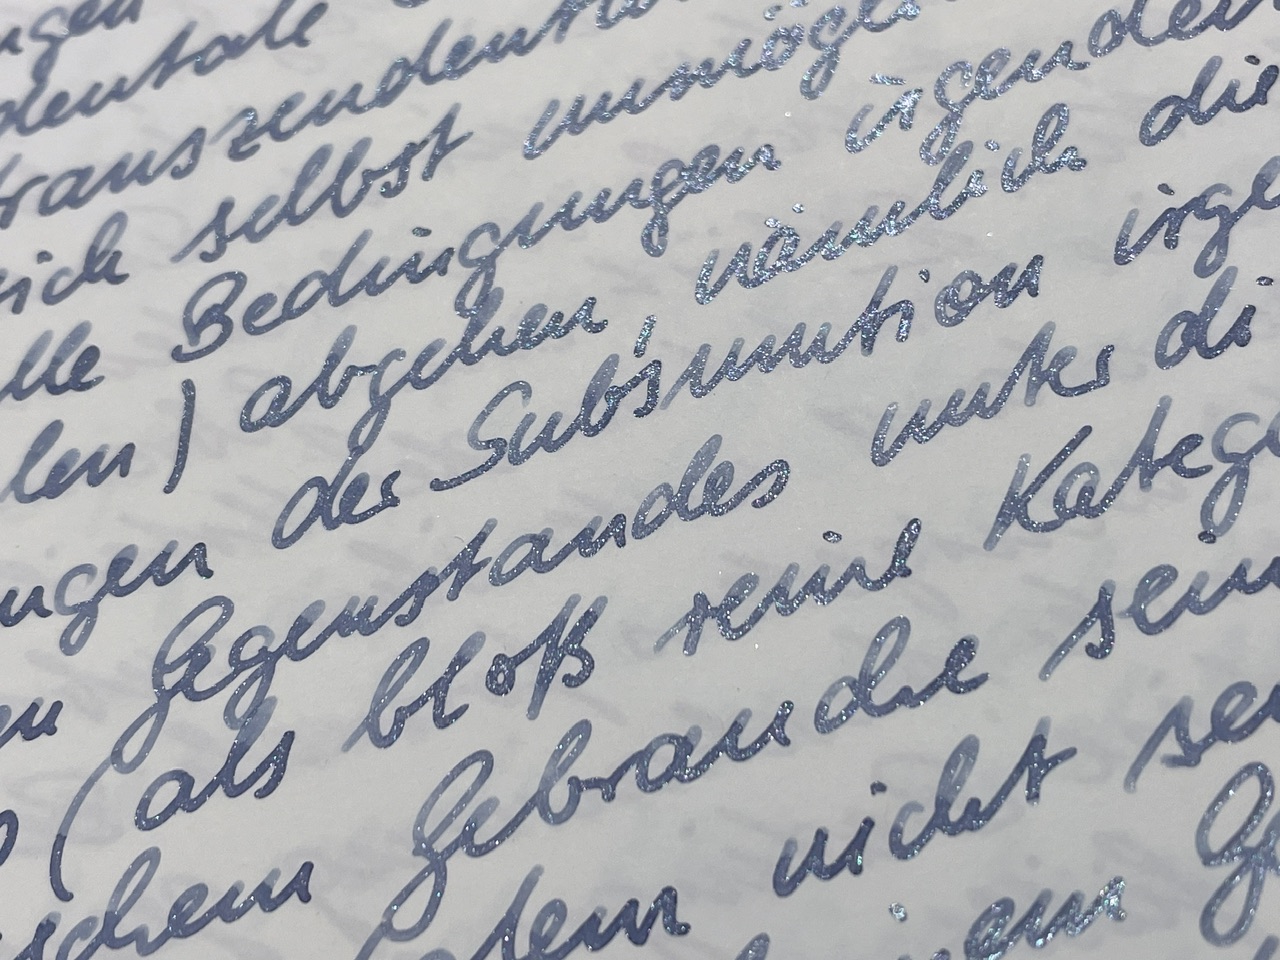 ngen
dentale
transzendenta
sich selbst unmögli
lle Bedingungen irgendein
len) abgehen, nämlich die
ngen der Subsumtion irge
en Gegenstandes unter di
(als bloß reine Katego
schem Gebrauche sein
alem nicht sei
inem Ge